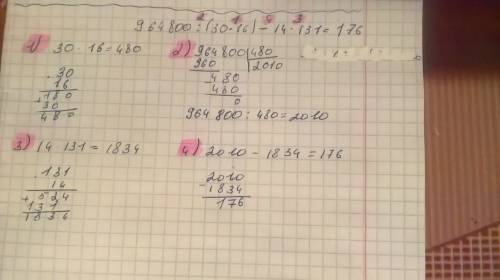 2 1 4 3
964800 : (30·16) − 14·131 = 176
1) 30·16=480
30
16
180
+ 30
480
2) 964800 | 480
960 | 2010
480
480
0
964800 : 480 = 2010
3) 14·131 = 1834
131
14
+ 524
131
1834
4) 2010 − 1834 = 176
2010
− 1834
176